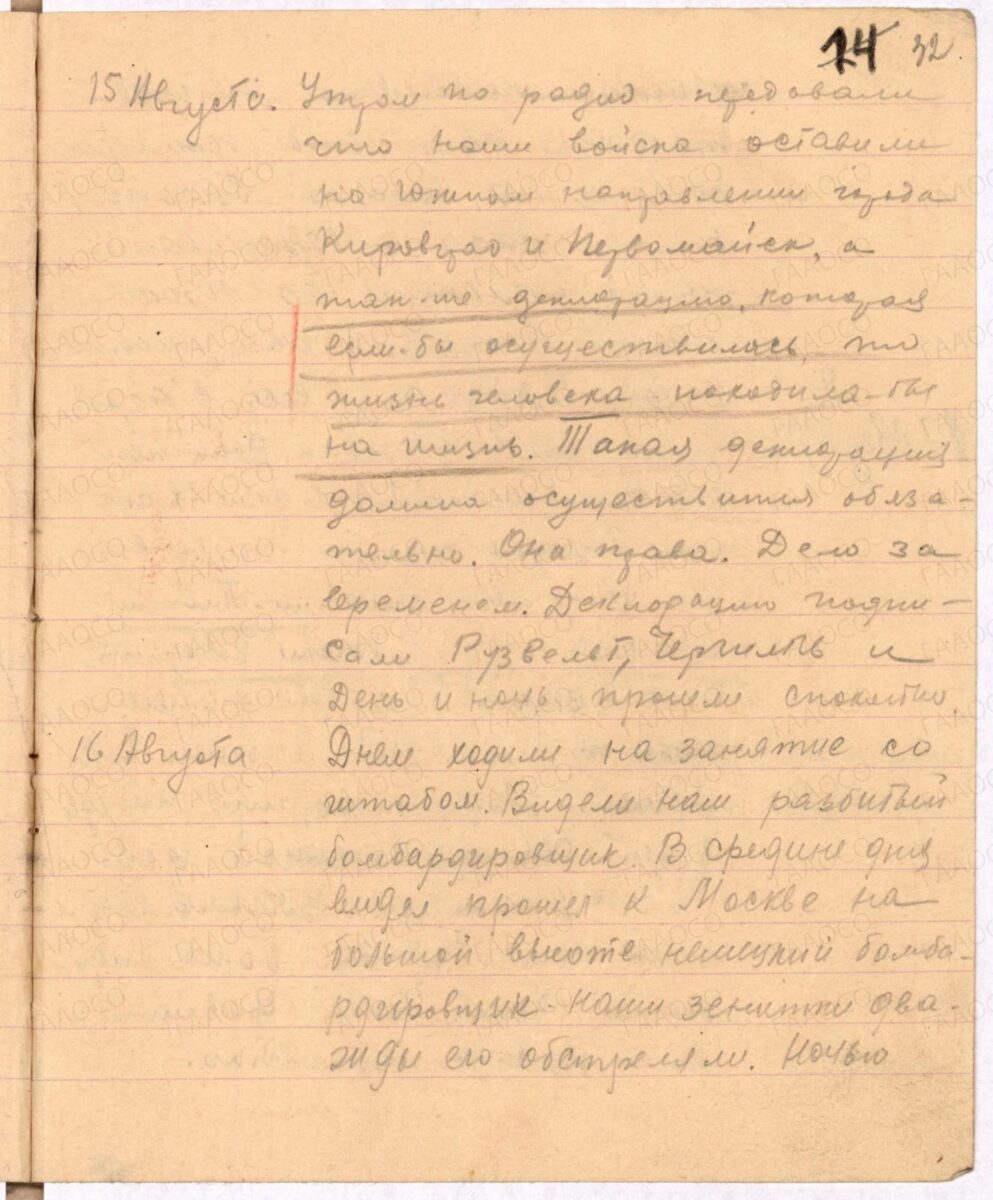 14 32
15 Августа. Утром по радио передовали
что наши войска оставили
на Южном направлении города
Кировград и Первомайск, а
так-же декларацию, которая
если-бы осуществилась, то
жизнь человека походила-бы
на жизнь. Такая декларация
должна осуществится обяза-
тельно. Она права. Дело за
временем. Декларацию подпи-
сали Рузвельт, Черчиль и
День и ночь прошли спокойно.
16 Августа Днем ходили на занятие со
штабом. Видели наш разбитый
бомбардировщик. В средине дня
видел прошел к Москве на
большой высоте немецкий бомба-
рдировщик. Наши зенитки два-
жды его обстреляли. Ночью
ГААОСО